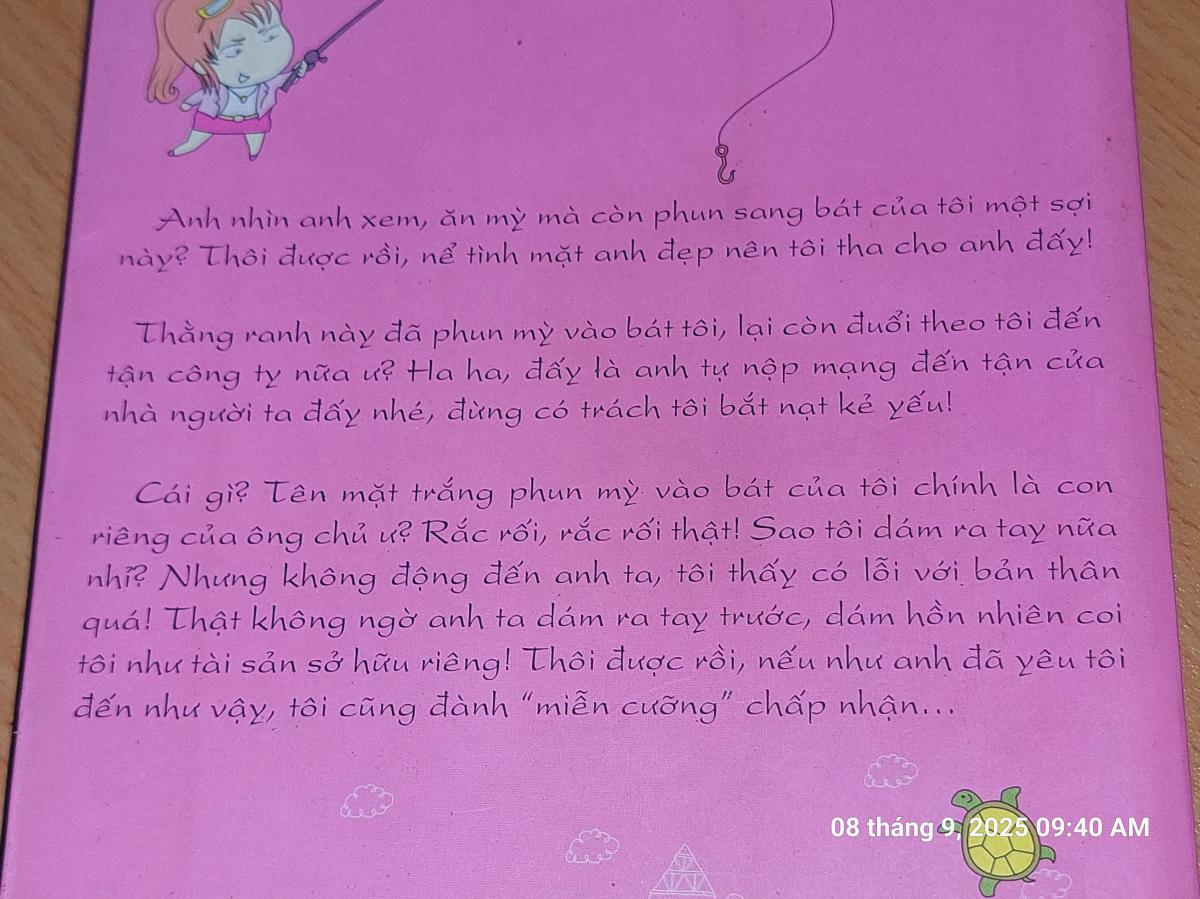 Anh nhìn anh xem, ăn mỳ mà còn phun sang bát của tôi một sợi
này? Thôi được rồi, nể tình mặt anh đẹp nên tôi tha cho anh đấy!
Thằng ranh này đã phun mỳ vào bát tôi, lại còn đuổi theo tôi đến
tận công ty nữa ư? Ha ha, đấy là anh tự nộp mạng đến tận cửa
nhà người ta đấy nhé, đừng có trách tôi bắt nạt kẻ yếu!
Cái gì? Tên mặt trắng phun mỳ vào bát của tôi chính là con
riêng của ông chủ ư? Rắc rối, rắc rối thật! Sao tôi dám ra tay nữa
nhỉ? Nhưng không động đến anh ta, tôi thấy có lỗi với bản thân
quá! Thật không ngờ anh ta dám ra tay trước, dám hồn nhiên coi
tôi như tài sản sở hữu riêng! Thôi được rồi, nếu như anh đã yêu tôi
đến như vậy, tôi cũng đành “miễn cưỡng” chấp nhận...
08 tháng 9, 2025 09:40 AM